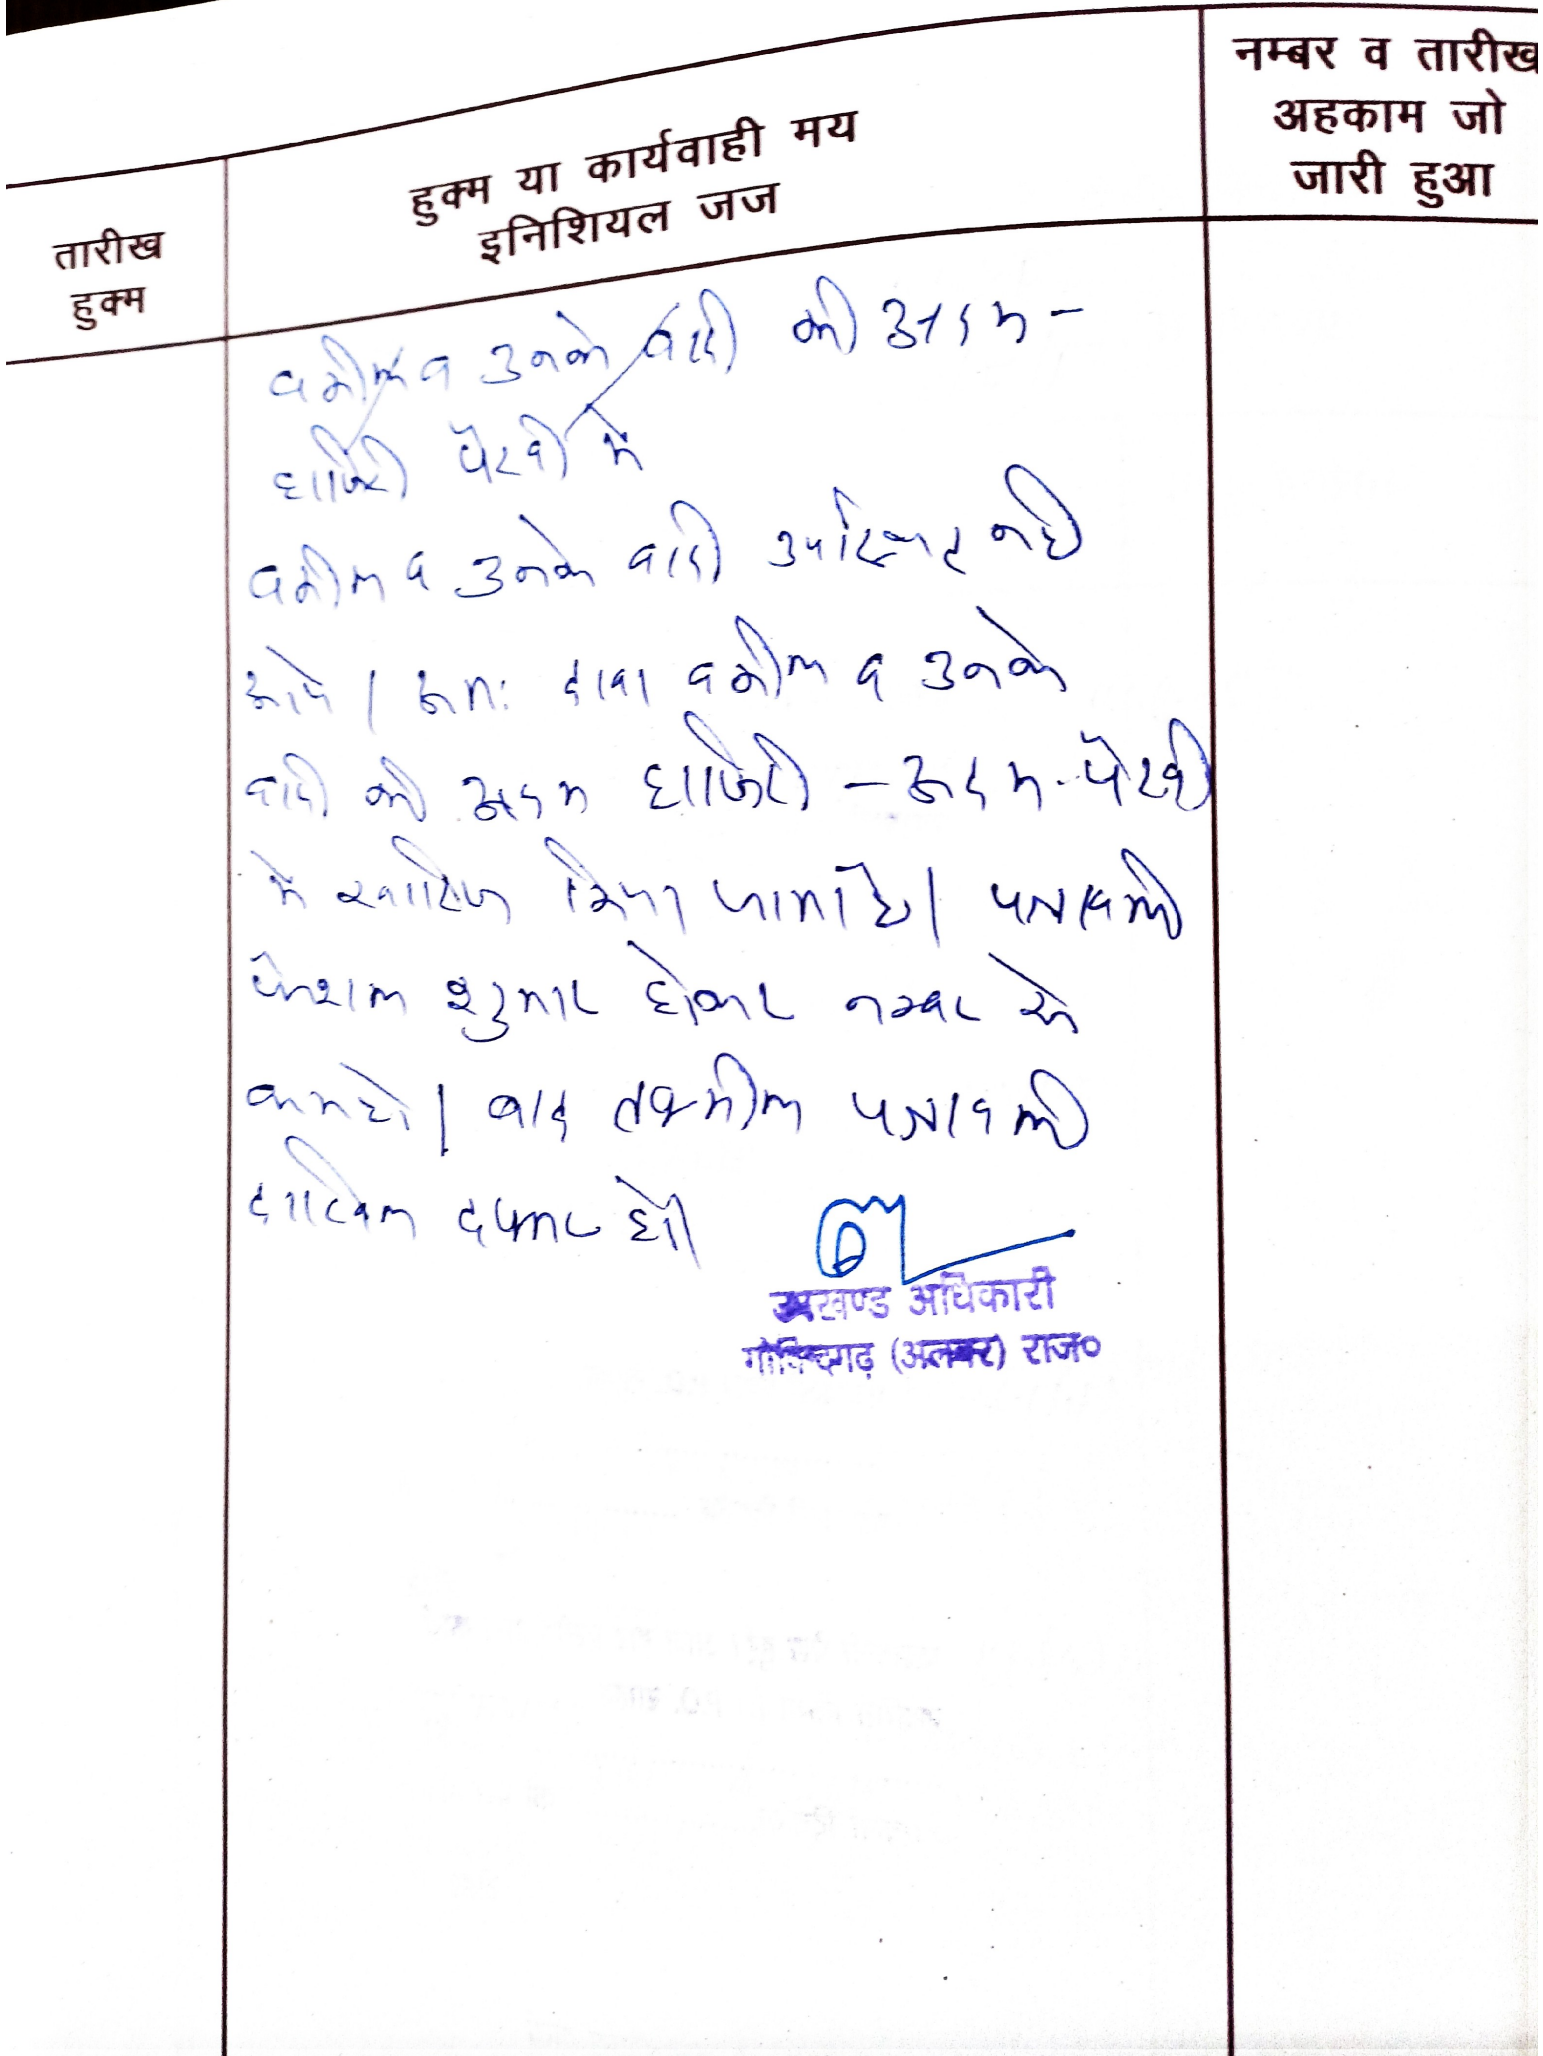 नम्बर व तारीख
अहकाम जो
जारी हुआ
हुक्म या कार्यवाही मय
इनिशियल जज
तारीख
हुक्म
वकील व उनके वादी की अदम -
हाजिरी पैरवी मे
वकील व उनके वादी उपस्थित नही
आये। अतः दावा वकील व उनके
वादी की अदम हाजिरी - अदम - पैरवी
मे खारिज किया जाता है। पत्रावली
फैशल शुमार होकर नम्बर से
कम हो। बाद तकमील पत्रावली
दाखिल दफ्तर हो।
उपखण्ड अधिकारी
गोविन्दगढ़ (अलवर) राज०